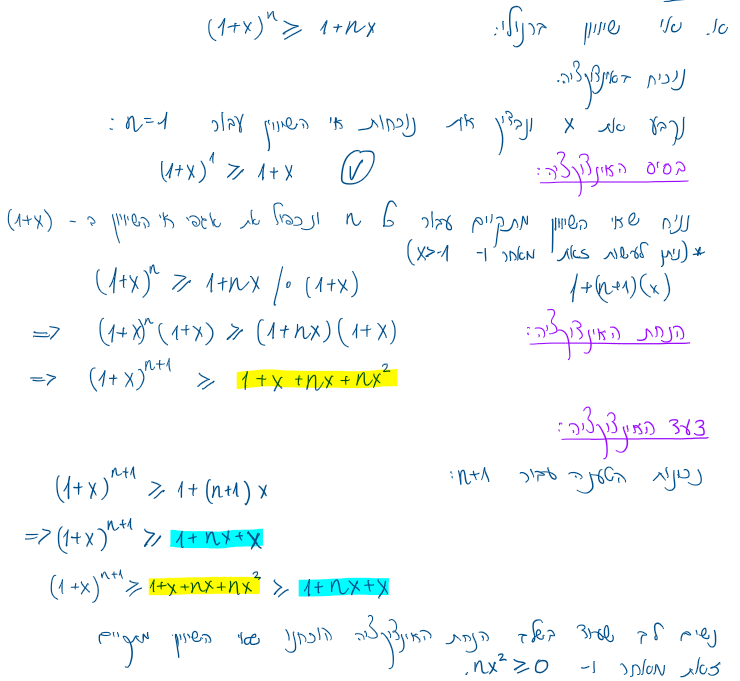 א. אי שיוויון ברנולי: (1+x)^n ≥ 1+nx
נוכיח באינדוקציה.
נקבע את x ונבדוק את נכונות אי השיוויון עבור n=1 :
בסיס האינדוקציה: (1+x)^1 ≥ 1+x ✓
נניח שאי השיוויון מתקיים עבור כל n ונכפיל את אגפי אי השיוויון ב - (1+x)
*(ניתן לעשות זאת מאחר ו- x>-1)
(1+x)^n ≥ 1+nx /· (1+x) 1+(n+1)(x)
הנחת האינדוקציה: => (1+x)^n (1+x) ≥ (1+nx)(1+x)
=> (1+x)^{n+1} ≥ 1+x+nx+nx^2
צעד האינדוקציה:
נכונות הטענה עבור n+1:
(1+x)^{n+1} ≥ 1+(n+1)x
=> (1+x)^{n+1} ≥ 1+nx+x
(1+x)^{n+1} ≥ 1+x+nx+nx^2 ≥ 1+nx+x
נשים לב שעוד בשלב הנחת האינדוקציה הוכחנו שאי השיוויון מתקיים
זאת מאחר ו- nx^2 ≥ 0.